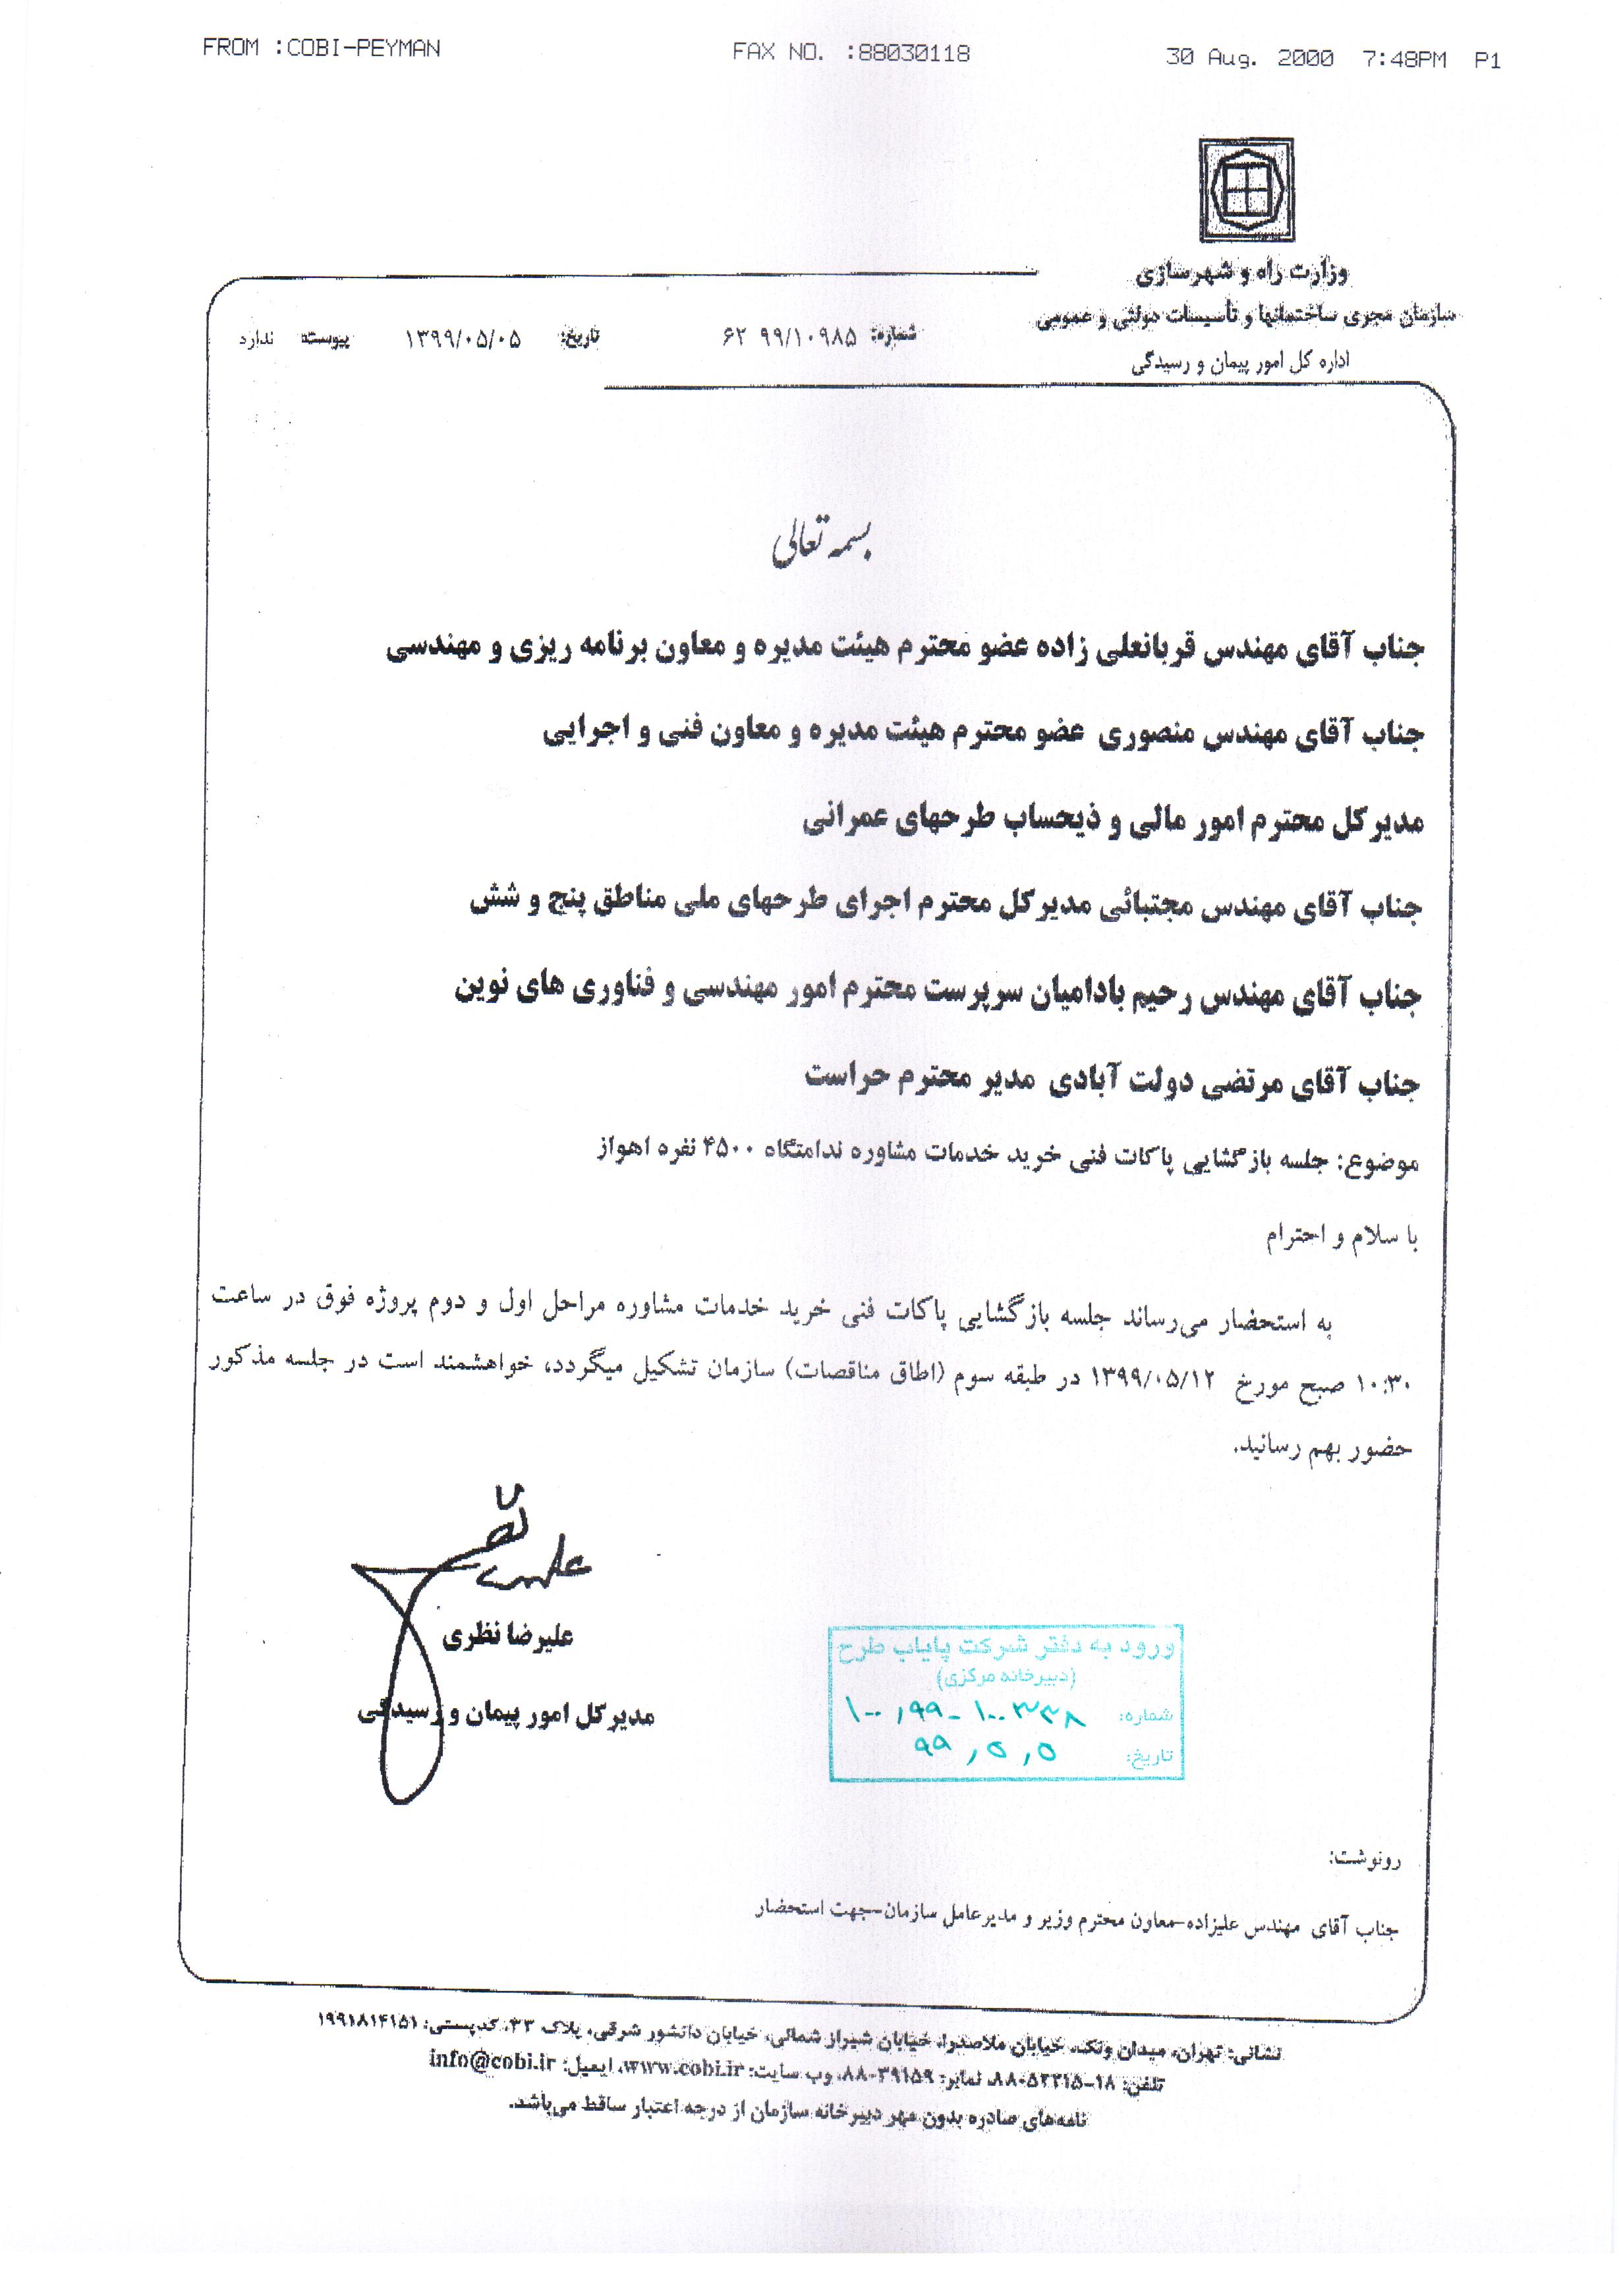 FROM :COBI-PEYMAN FAX NO. :88030118 30 Aug. 2000 7:48PM P1
وزارت راه و شهرسازی
سازمان مجری ساختمانها و تأسیسات دولتی و عمومی
اداره کل امور پیمان و رسیدگی
شماره: ۹۹/۱۰۹۸۵ ۶۲ تاریخ: ۱۳۹۹/۰۵/۰۵ پیوست: ندارد
بسمه تعالی
جناب آقای مهندس قربانعلی زاده عضو محترم هیئت مدیره و معاون برنامه ریزی و مهندسی
جناب آقای مهندس منصوری عضو محترم هیئت مدیره و معاون فنی و اجرایی
مدیرکل محترم امور مالی و ذیحساب طرحهای عمرانی
جناب آقای مهندس مجتبائی مدیرکل محترم اجرای طرحهای ملی مناطق پنج و شش
جناب آقای مهندس رحیم بادامیان سرپرست محترم امور مهندسی و فناوری های نوین
جناب آقای مرتضی دولت آبادی مدیر محترم حراست
موضوع: جلسه بازگشایی پاکات فنی خرید خدمات مشاوره ندامتگاه ۴۵۰۰ نفره اهواز
با سلام و احترام
به استحضار می‌رساند جلسه بازگشایی پاکات فنی خرید خدمات مشاوره مراحل اول و دوم پروژه فوق در ساعت
۱۰:۳۰ صبح مورخ ۱۳۹۹/۰۵/۱۲ در طبقه سوم (اطاق مناقصات) سازمان تشکیل میگردد، خواهشمند است در جلسه مذکور
حضور بهم رسانید.
علیرضا نظری
مدیرکل امور پیمان و رسیدگی
ورود به دفتر شرکت پایاب طرح
(دبیرخانه مرکزی)
شماره: ۱۰۰,۹۹-۱۰۰۳۳۸
تاریخ: ۹۹,۵,۵
رونوشت:
جناب آقای مهندس علیزاده-معاون محترم وزیر و مدیرعامل سازمان-جهت استحضار
نشانی: تهران، میدان ونک، خیابان ملاصدرا، خیابان شیراز شمالی، خیابان دانشور شرقی، پلاک ۳۳، کدپستی: ۱۹۹۱۸۱۴۱۵۱
تلفن: ۱۸-۸۸۰۵۲۲۱۵، نمابر: ۸۸۰۳۹۱۵۹، وب سایت: www.cobi.ir، ایمیل: info@cobi.ir
نامه‌های صادره بدون مهر دبیرخانه سازمان از درجه اعتبار ساقط می‌باشد.